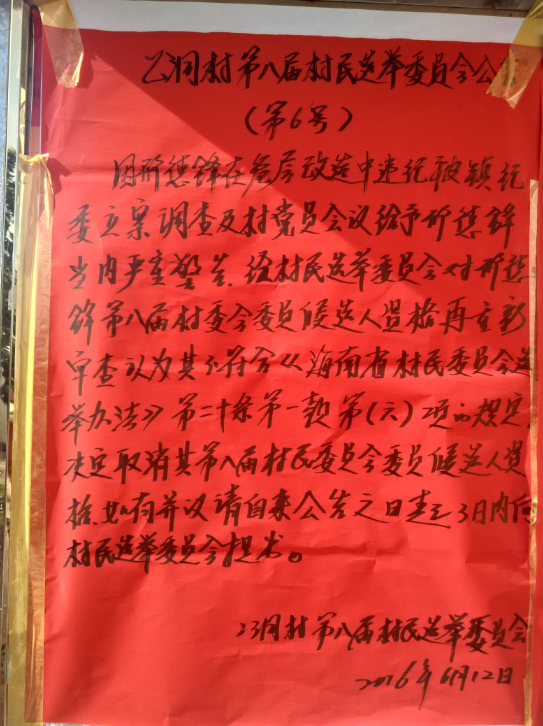 乙洞村第八届村民选举委员会公
(第6号)
因所德锋在危房改造中违纪被镇纪
委立案调查及村党员会议给予所德锋
党内严重警告,经村民选举委员会对所德
锋第八届村委会委员候选人资格再重新
审查认为其不符合《海南省村民委员会选
举办法》第二十条第一款第(六)项的规定,
决定取消其第八届村民委员会委员候选人资
格,如有异议请自来公告之日起3日内向
村民选举委员会提出。
乙洞村第八届村民选举委员会
2016年6月12日